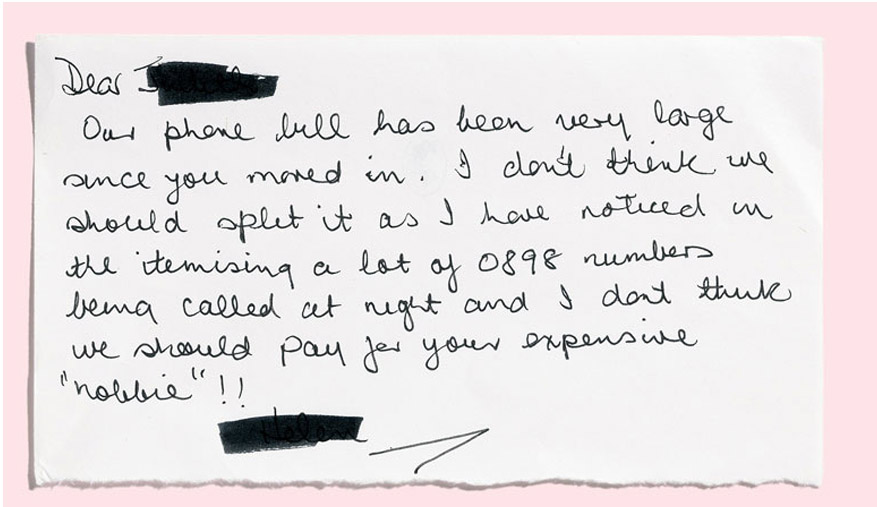 Dear
Our phone bill has been very large
since you moved in. I don't think we
should split it as I have noticed in
the itemising a lot of 0898 numbers
being called at night and I dont think
we should pay for your expensive
"hobbie"!!